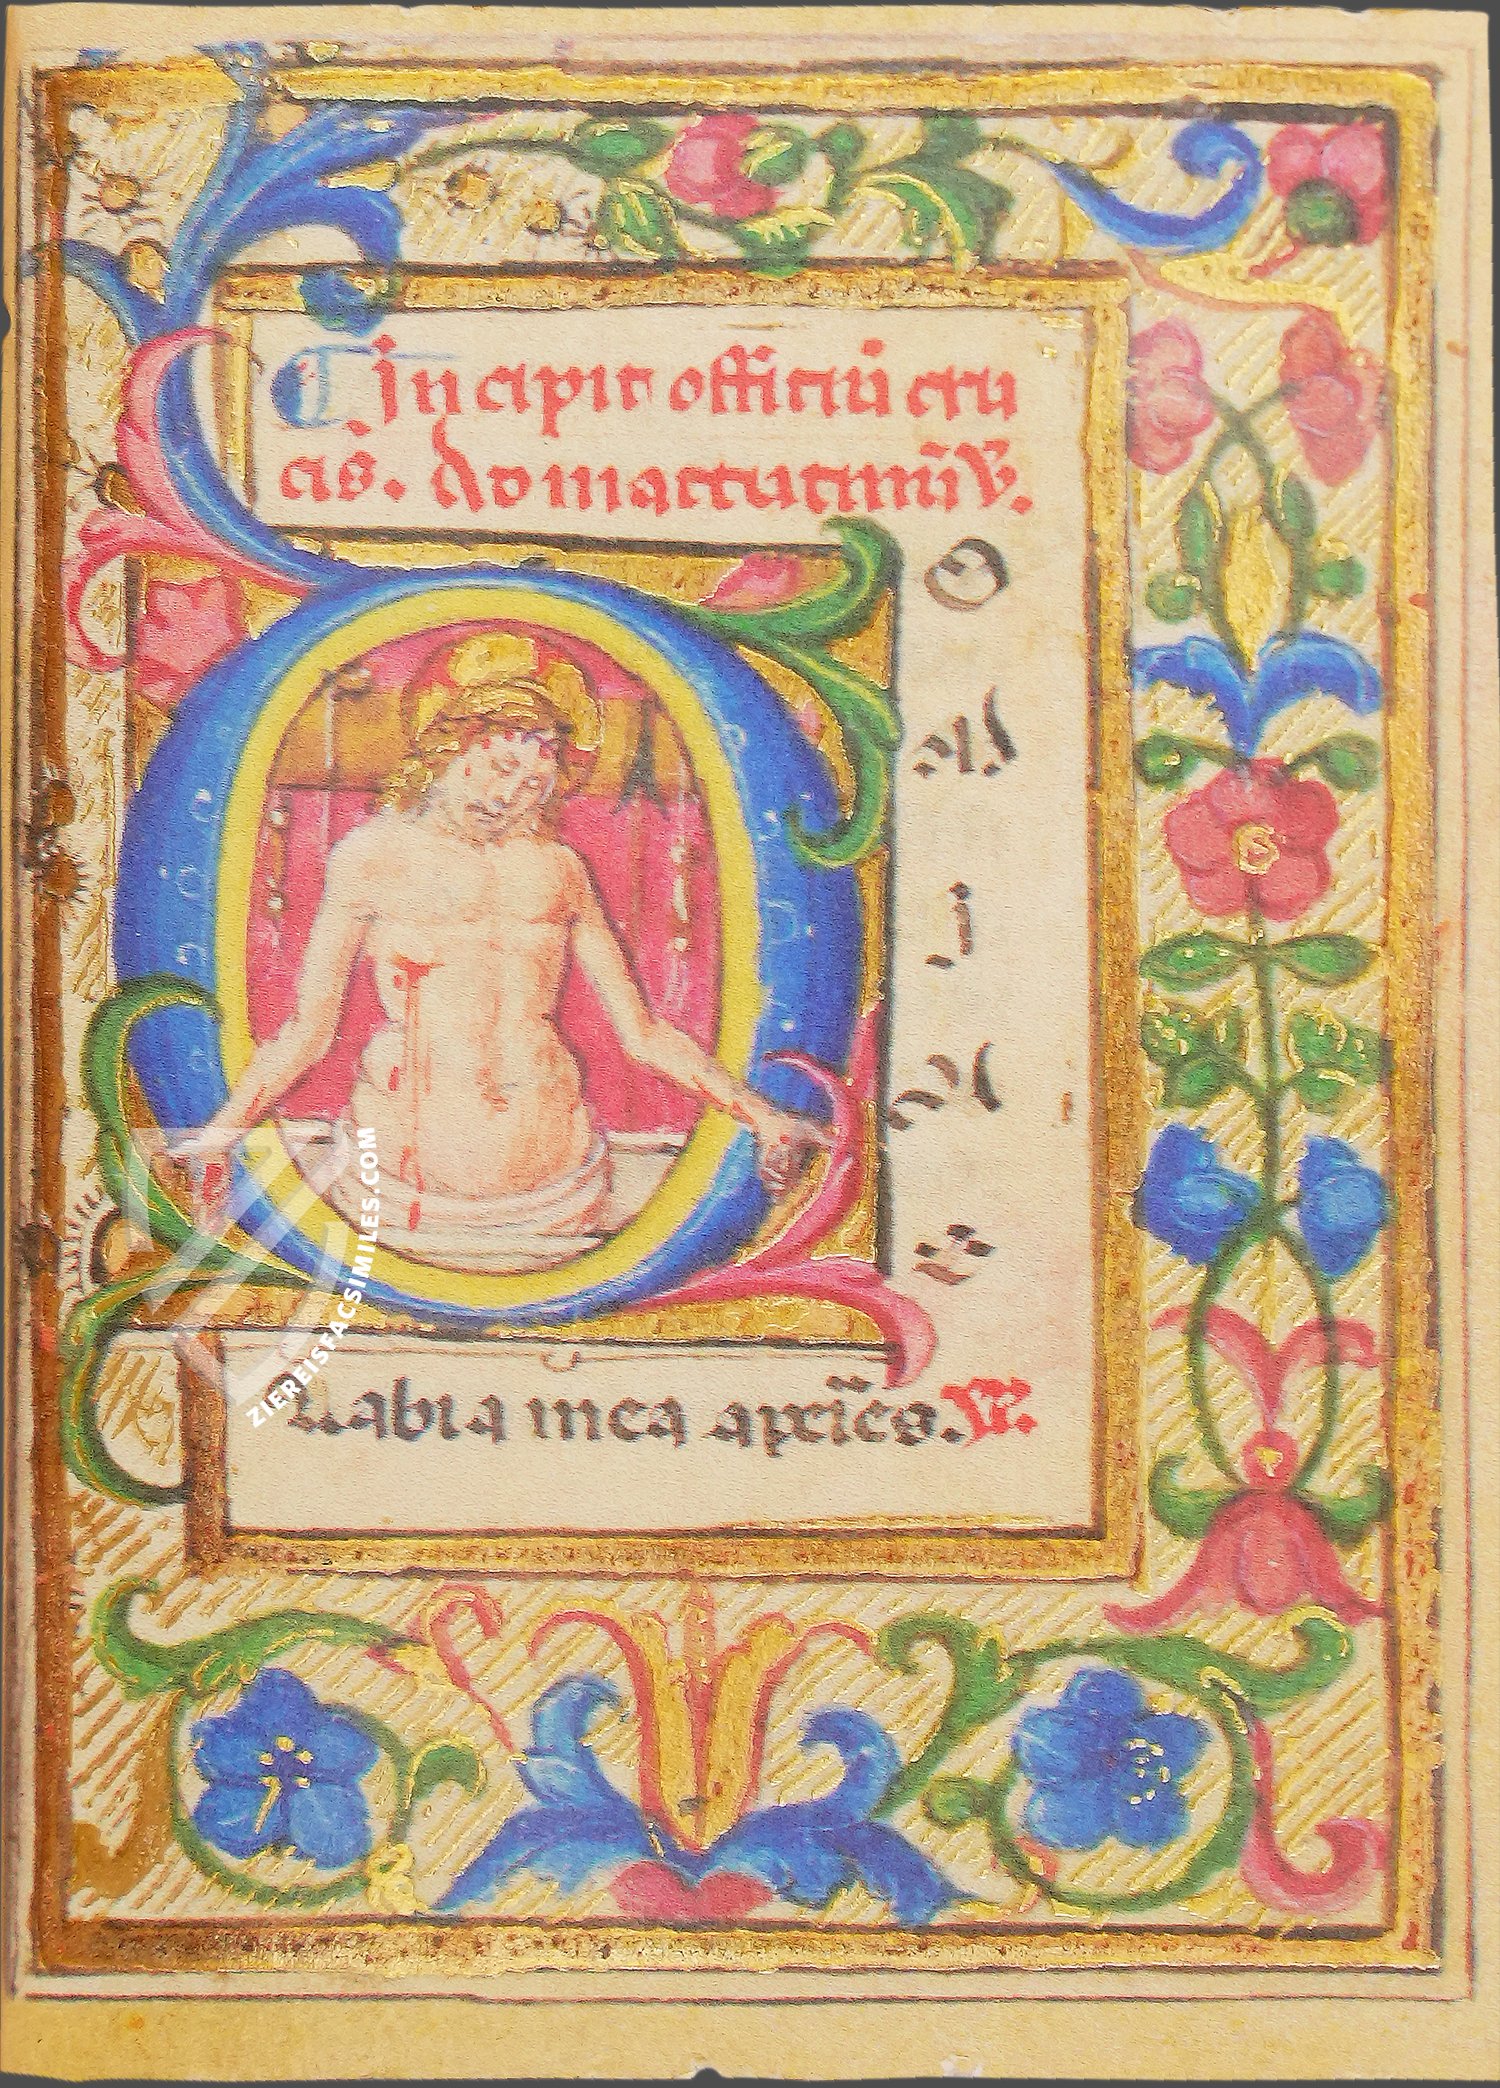 ¶ Incipit officiū cru
cis. Ad mactutinū. V̄.
D
O
M
I
N
E
Labia mea apīes.
ZIEREISFACSIMILES.COM